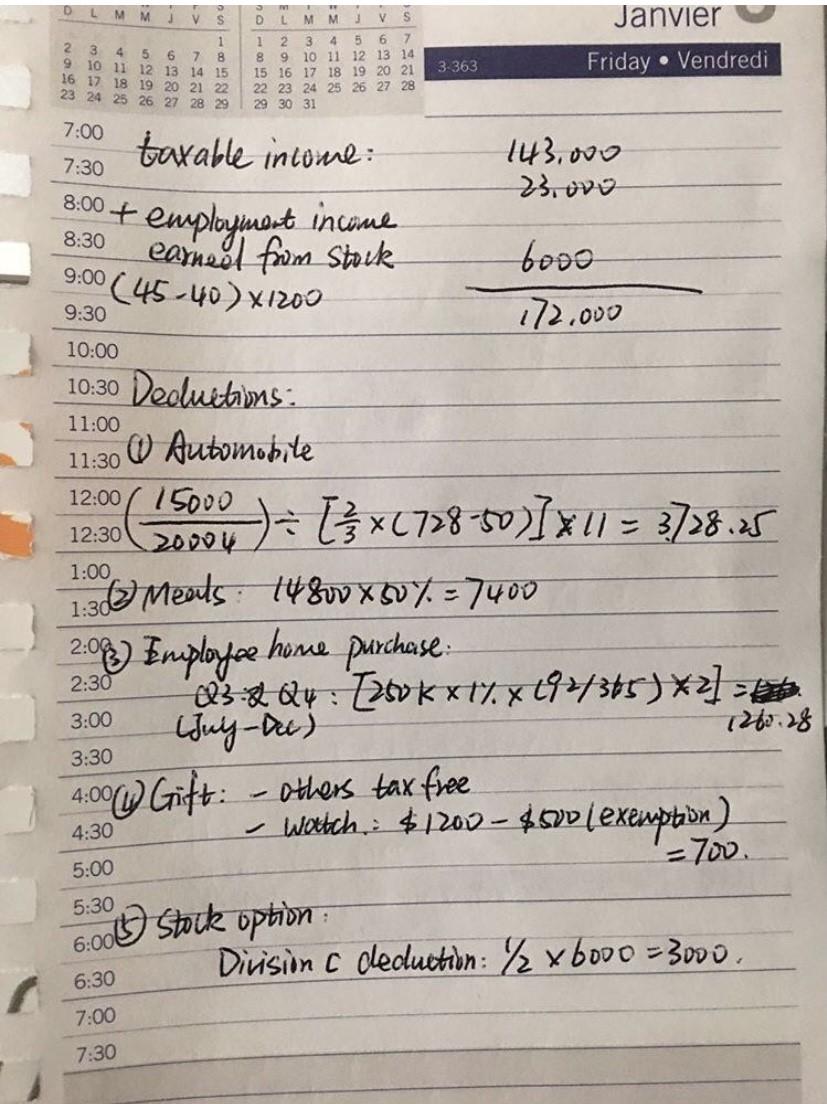 D L M M J V S
S M T W T F S
D L M M J V S
1
2 3 4 5 6 7 8
9 10 11 12 13 14 15
16 17 18 19 20 21 22
23 24 25 26 27 28 29
1 2 3 4 5 6 7
8 9 10 11 12 13 14
15 16 17 18 19 20 21
22 23 24 25 26 27 28
29 30 31
Janvier
3-363 Friday • Vendredi
7:00
taxable income: 143.000
7:30
23.000
8:00 + employment income
8:30 earned from stock 6000
9:00 (45-40)×1200
9:30 172.000
10:00
10:30 Deductions:
11:00
11:30 ① Automobile
12:00
12:30 (15000/20004) ÷ [2/3 × (728-50)] × 11 = 3728.25
1:00
1:30 ② Meals: 14800×50% = 7400
2:00 ③ Employee home purchase:
2:30 Q3 & Q4: [250K × 1% × (92/365) × 2] =
3:00 (July-Dec) 1260.28
3:30
4:00 ④ Gift: - others tax free
4:30 - watch: $1200 - $500 (exemption)
= 700.
5:00
5:30
6:00 ⑤ Stock option:
Division C deduction: 1/2 × 6000 = 3000.
6:30
7:00
7:30